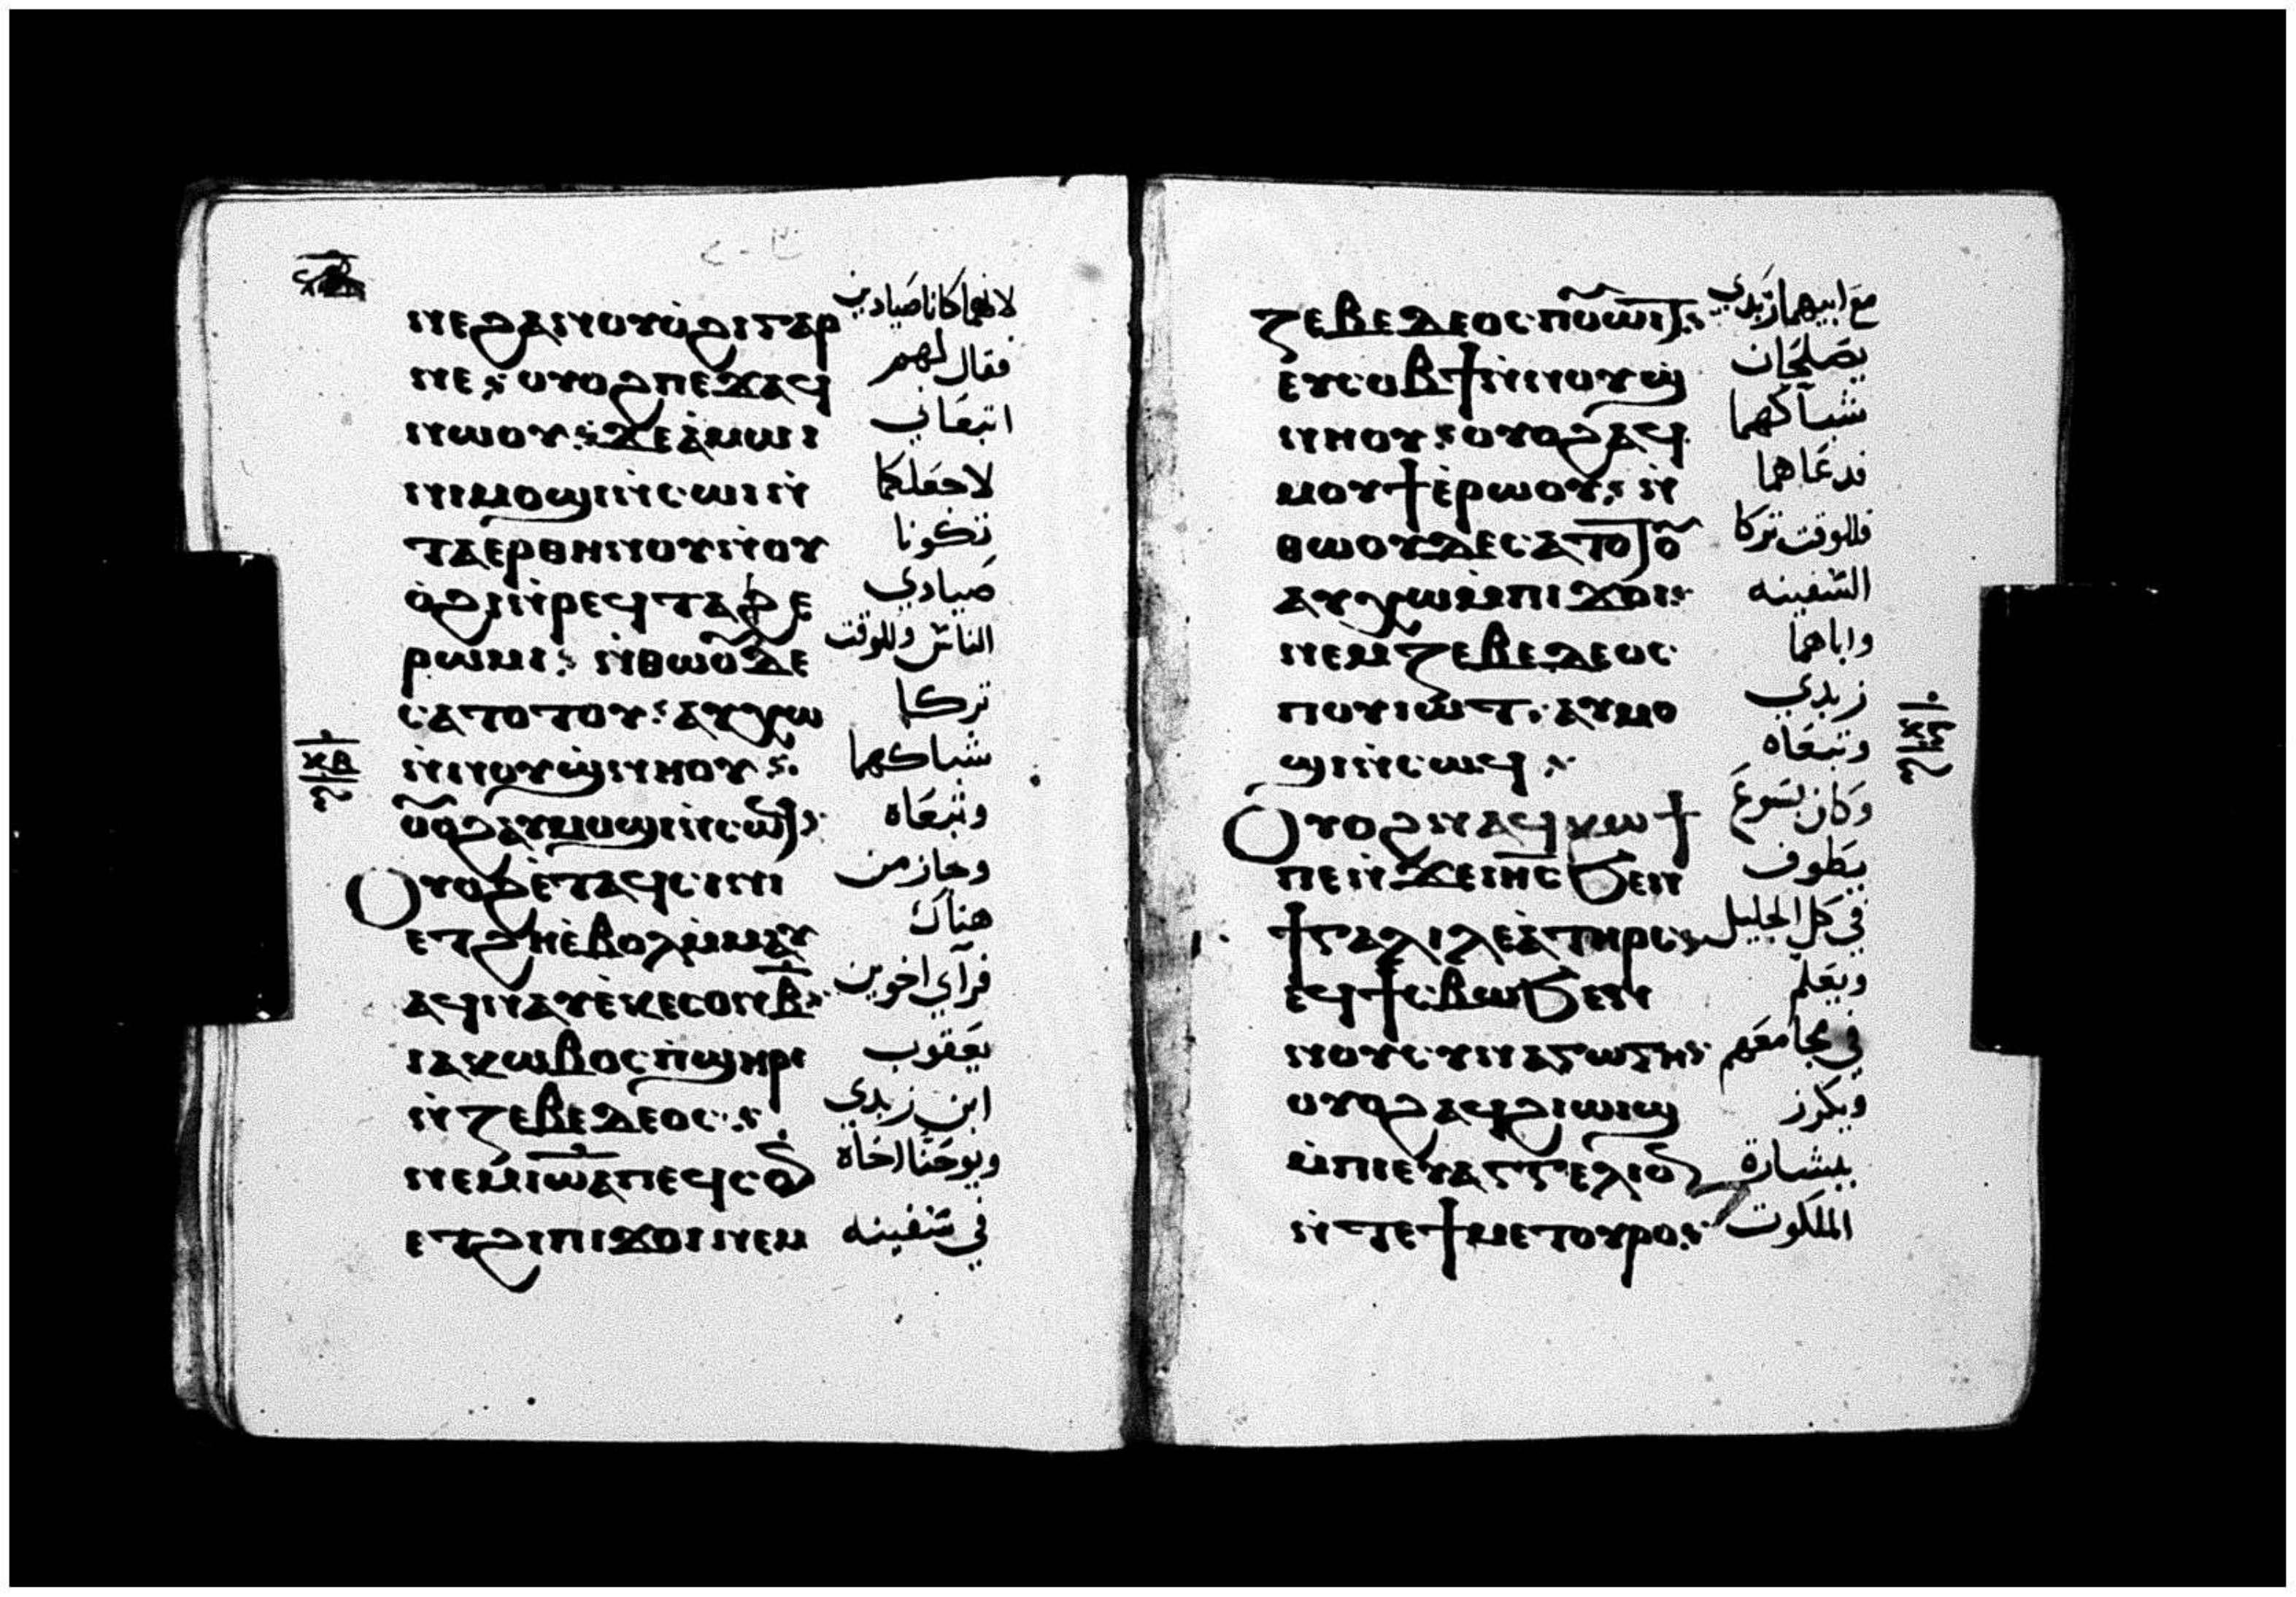 ⲛⲉϩⲁⲛⲟⲩⲟ̀ϩⲓⲅⲁⲣ لانهما كانا صيادين
ⲛⲉ ⲟⲩⲟϩ ⲡⲉϫⲁϥ فقال لهم
ⲛⲱⲟⲩ ϫⲉ ⲁ̀ⲙⲱⲓ ⲛⲓ اتبعاني
ⲙⲟϣⲓ ⲛ̀ⲥⲱⲓ ⲛ̀ لاجعلكما
ⲧⲁⲉⲣⲑⲏⲛⲟⲩ ⲛ̀ⲟⲩ تكونا
ⲟ̀ϩⲓ ⲛ̀ⲣⲉϥⲧⲁϩⲉ صيادي
ⲣⲱⲙⲓ ⲛ̀ⲑⲱⲟⲩ ⲇⲉ الناس وللوقت
ⲥⲁⲧⲟⲧⲟⲩ ⲁⲩⲭⲱ تركا
ⲛ̀ⲛⲟⲩϣⲛⲏⲟⲩ شباكهما
ⲟⲩⲟϩ ⲁⲩⲙⲟϣⲓ ⲛ̀ⲥⲱϥ وتبعاه
Ⲟⲩⲟϩ ⲉ̀ⲧⲁϥⲥⲓⲛⲓ وجاز من
ⲉⲧϩⲏ ⲉ̀ⲃⲟⲗ ⲙ̀ⲙⲁⲩ هناك
ⲁϥⲛⲁⲩ ⲉ̀ⲕⲉⲥⲟⲛ ⲃ̅ فرآي اخوين
ⲓⲁⲕⲱⲃⲟⲥ ⲡ̀ϣⲏⲣⲓ يعقوب
ⲛ̀ⲍⲉⲃⲉⲇⲉⲟⲥ ابن زبدي
ⲛⲉⲙ ⲓⲱⲁ ⲡⲉϥⲥⲟⲛ ويوحنا اخاه
ⲉⲧϩⲓ ⲡⲓϫⲟⲓ ⲛⲉⲙ في سفينه
ⲍⲉⲃⲉⲇⲉⲟⲥ ⲡⲟⲩⲓⲱⲧ مع ابيهما زبدي
ⲉⲩⲥⲟⲃϯ ⲛ̀ⲛⲟⲩϣ يصلحان
ⲛⲏⲟⲩ ⲟⲩⲟϩ ⲁϥ شباكهما
ⲙⲟⲩϯ ⲉ̀ⲣⲱⲟⲩ ⲛ̀ فدعاهما
ⲑⲱⲟⲩ ⲇⲉ ⲥⲁⲧⲟⲧⲟⲩ فللوقت تركا
ⲁⲩⲭⲱ ⲙ̀ⲡⲓϫⲟⲓ السفينه
ⲛⲉⲙ ⲍⲉⲃⲉⲇⲉⲟⲥ واباهما
ⲡⲟⲩⲓⲱⲧ ⲁⲩⲙⲟ زبدي
ϣⲓ ⲛ̀ⲥⲱϥ وتبعاه
Ⲟⲩⲟϩ ⲛⲁϥⲕⲱϯ وكان يسوع
ⲡⲉ ⲛ̀ϫⲉ ⲓⲏⲥ ϧⲉⲛ يطوف
ϯⲅⲁⲗⲓⲗⲉⲁ̀ ⲧⲏⲣⲥ في كل الجليل
ⲉϥϯⲥⲃⲱ ϧⲉⲛ ويعلم
ⲛⲟⲩⲥⲩⲛⲁⲅⲱⲅⲏ في مجامعهم
ⲟⲩⲟϩ ⲁϥϩⲓⲱⲓϣ ويكرز
ⲙ̀ⲡⲓⲉⲩⲁⲅⲅⲉⲗⲓⲟⲛ ببشارة
ⲛ̀ⲧⲉ ϯⲙⲉⲧⲟⲩⲣⲟ الملكوت